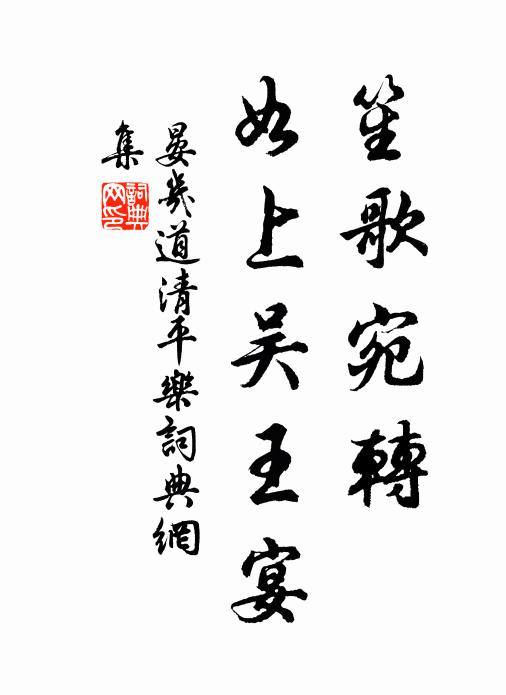 笙歌宛轉
台上吴王宴
晏幾道清平樂詞典網
集
詞典
网印